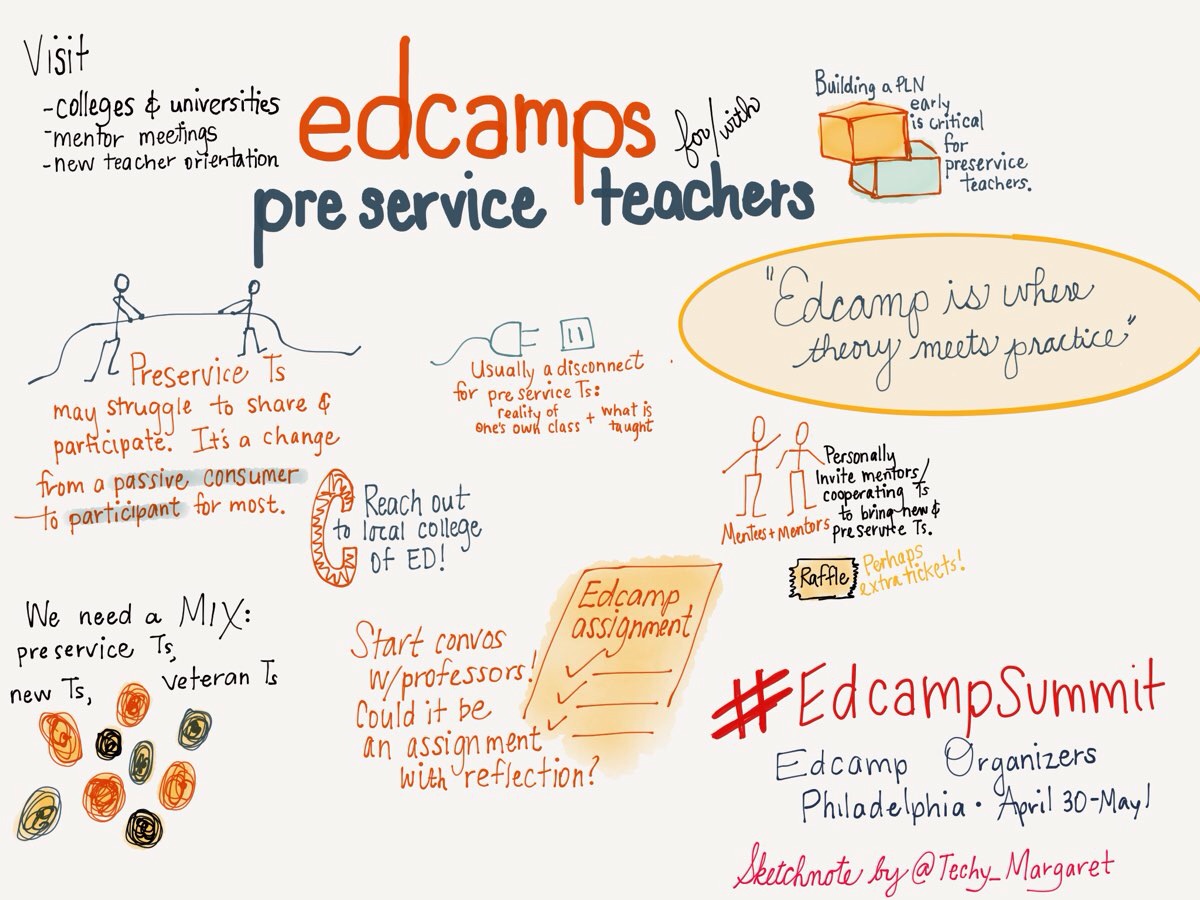 Visit
-colleges & universities
-mentor meetings
-new teacher orientation
edcamps
for/with
pre service teachers
Building a PLN
early
is critical
for
preservice
teachers.
"Edcamp is where
theory meets practice"
Preservice Ts
may struggle to share &
participate. It's a change
from a passive consumer
to participant for most.
Usually a disconnect
for pre service Ts:
reality of
one's own class + what is
taught
Reach out
to local college
of ED!
Mentees + Mentors
Personally
Invite mentors/
cooperating Ts
to bring new &
preservice Ts.
Raffle
Perhaps
extra tickets!
We need a MIX:
pre service Ts,
new Ts, veteran Ts
Start convos
w/professors!
Could it be
an assignment
with reflection?
Edcamp
assignment
#EdcampSummit
Edcamp Organizers
Philadelphia • April 30-May 1
Sketchnote by @Techy_Margaret